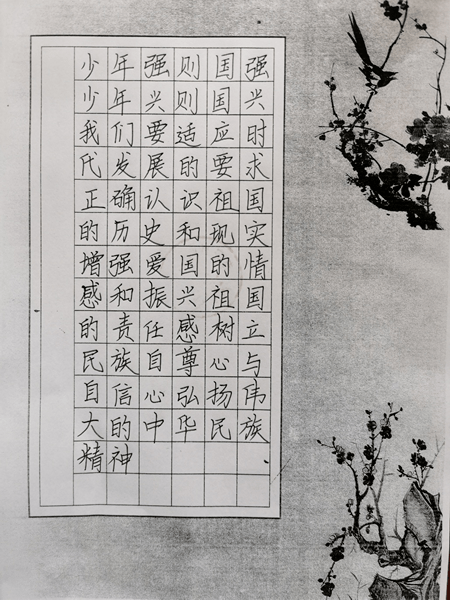 少年强则国强
少年兴则国兴
我们要适应时
代发展的要求
正确认识祖国
的历史和现实
增强爱国的情
感和振兴祖国
的责任感树立
民族自尊心与
自信心弘扬伟
大的中华民族
精神